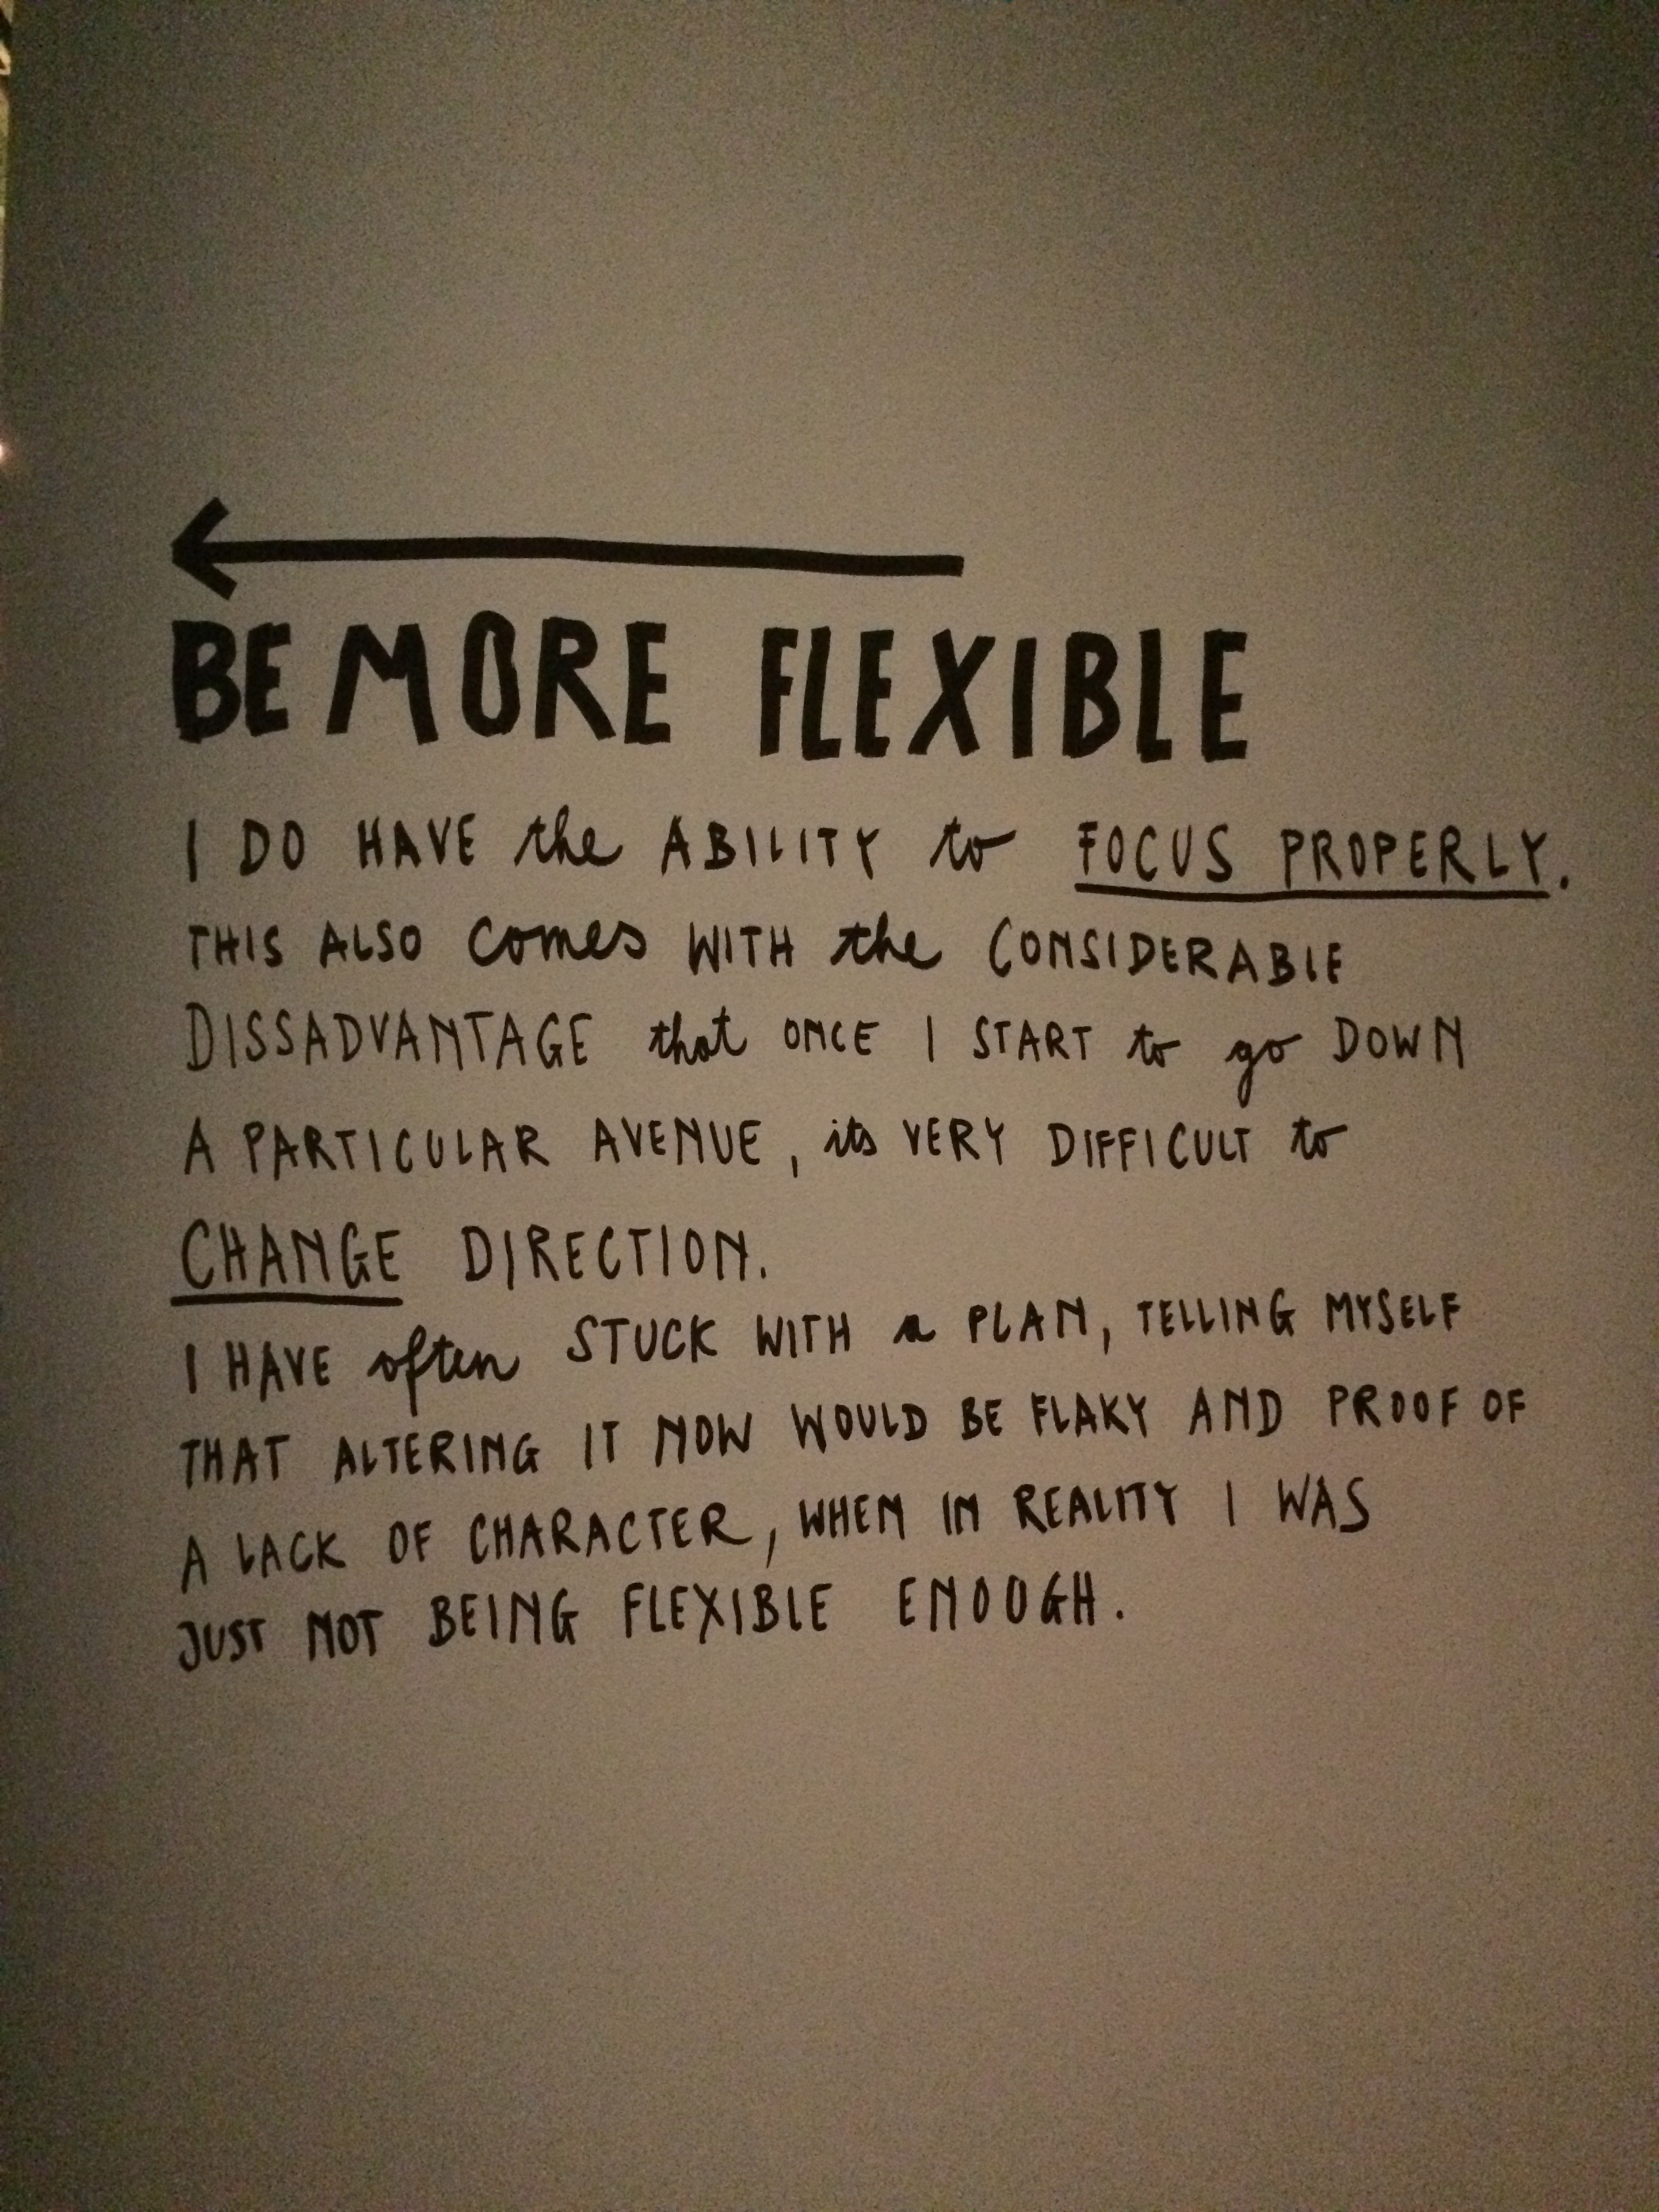 BE MORE FLEXIBLE
I DO HAVE the ABILITY to FOCUS PROPERLY.
THIS ALSO comes WITH the CONSIDERABLE
DISSADVANTAGE that ONCE I START to go DOWN
A PARTICULAR AVENUE, its VERY DIFFICULT to
CHANGE DIRECTION.
I HAVE often STUCK WITH a PLAN, TELLING MYSELF
THAT ALTERING IT NOW WOULD BE FLAKY AND PROOF OF
A LACK OF CHARACTER, WHEN IN REALITY I WAS
JUST NOT BEING FLEXIBLE ENOUGH.